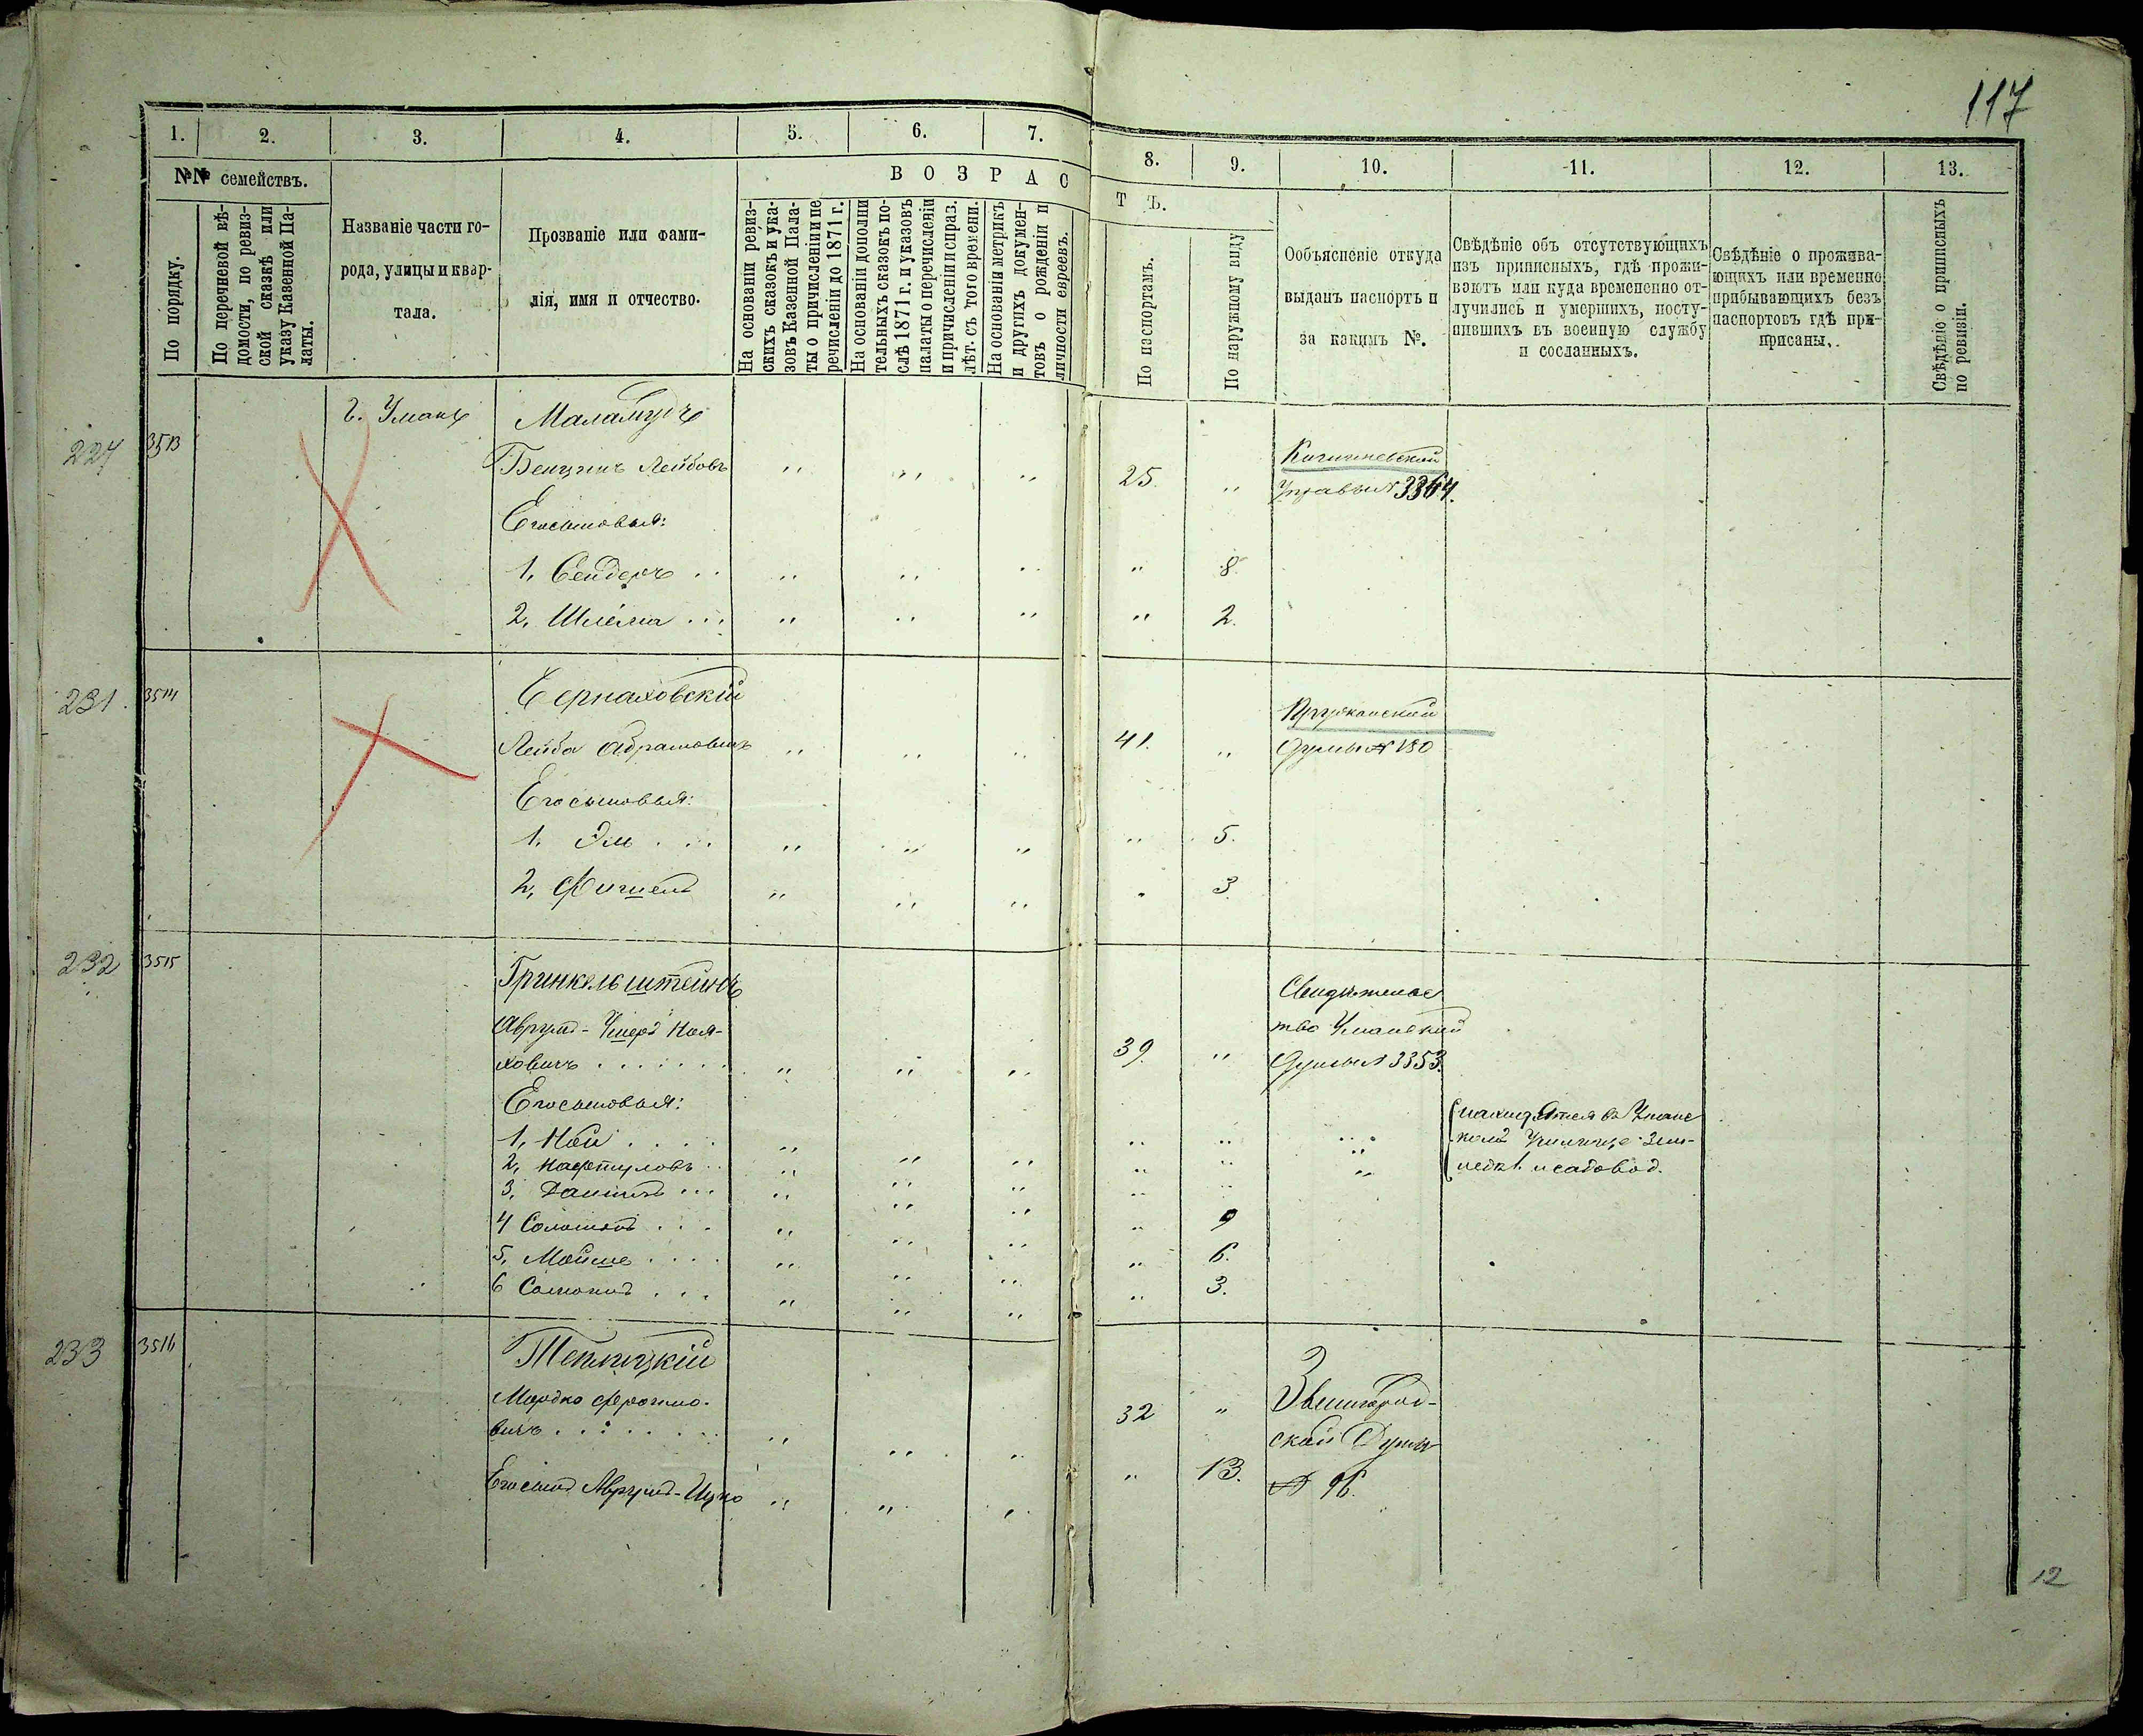 117
1. 2. 3. 4. 5. 6. 7. 8. 9. 10. 11. 12. 13.
№№ семействъ.
По порядку.
По перечневой вѣ-
домости, по ревиз-
ской сказкѣ или
указу Казенной Па-
латы.
Названіе части го-
рода, улицы и квар-
тала.
Прозваніе или фами-
лія, имя и отчество.
ВОЗРАС
ТЪ.
На основаніи ревиз-
скихъ сказокъ и ука-
зовъ Казенной Пала-
ты о причисленіи и пе
речисленіи до 1871 г.
На основаніи дополни
тельныхъ сказокъ по-
слѣ 1871 г. и указовъ
палаты о перечисленіи
и причисленіи и справ.
лѣт. съ того времени.
На основаніи метрикъ
и другихъ докумен-
товъ о рожденіи и
личности евреевъ.
По паспортамъ.
По наружному виду
Ообъясненіе откуда
выданъ паспортъ и
за какимъ №.
Свѣдѣніе объ отсутствующихъ
изъ приписныхъ, гдѣ прожи-
ваютъ или куда временно от-
лучились и умершихъ, посту-
пившихъ въ военную службу
и сосланныхъ.
Свѣдѣніе о прожива-
ющихъ или временно
прибывающихъ безъ
паспортовъ гдѣ при-
писаны.
Свѣдѣніе о приписныхъ
по ревизіи.
г. Умань Маламудъ
227 3513 Бенционъ Лейбовъ " " " 25 " Кишиневской
Управы № 3364.
Его сыновья:
1, Сендеръ . . " " " " 8.
2, Шлема ... " " " " 2.
231. 3514 Черняховскій
Лейба Абрамовичъ " " " 41. " Пружанской
Думы № 180
Его сыновья:
1. Эли . . . " " " " 5.
2, Фишель " " " " 3
232 3515 Гринкельштейнъ
Аврумъ-Ушеръ Ноя-
ховичъ . . . . . . " " " 39. " Свидетельс
тво Уманской
Думы № 3353.
Его сыновья:
1, Ной . . . . " " " " " "
2, Нафтуловъ . . " " " " " "
3, Даниилъ ... " " " " "
находятся въ Уманс
комъ Училище Зем-
лед. и садовод.
4 Соломонъ . . . " " " " 9
5, Мойше . . . . " " " " 6.
6 Соломонъ . . . " " " " 3.
233 3516 Теплицкій
Мордко Фроимо-
вичъ . . . . . . . " " " 32 " Звенигород-
ской Думы
№ 96.
Его сынъ Аврумъ-Ицко " " " " 13.
12